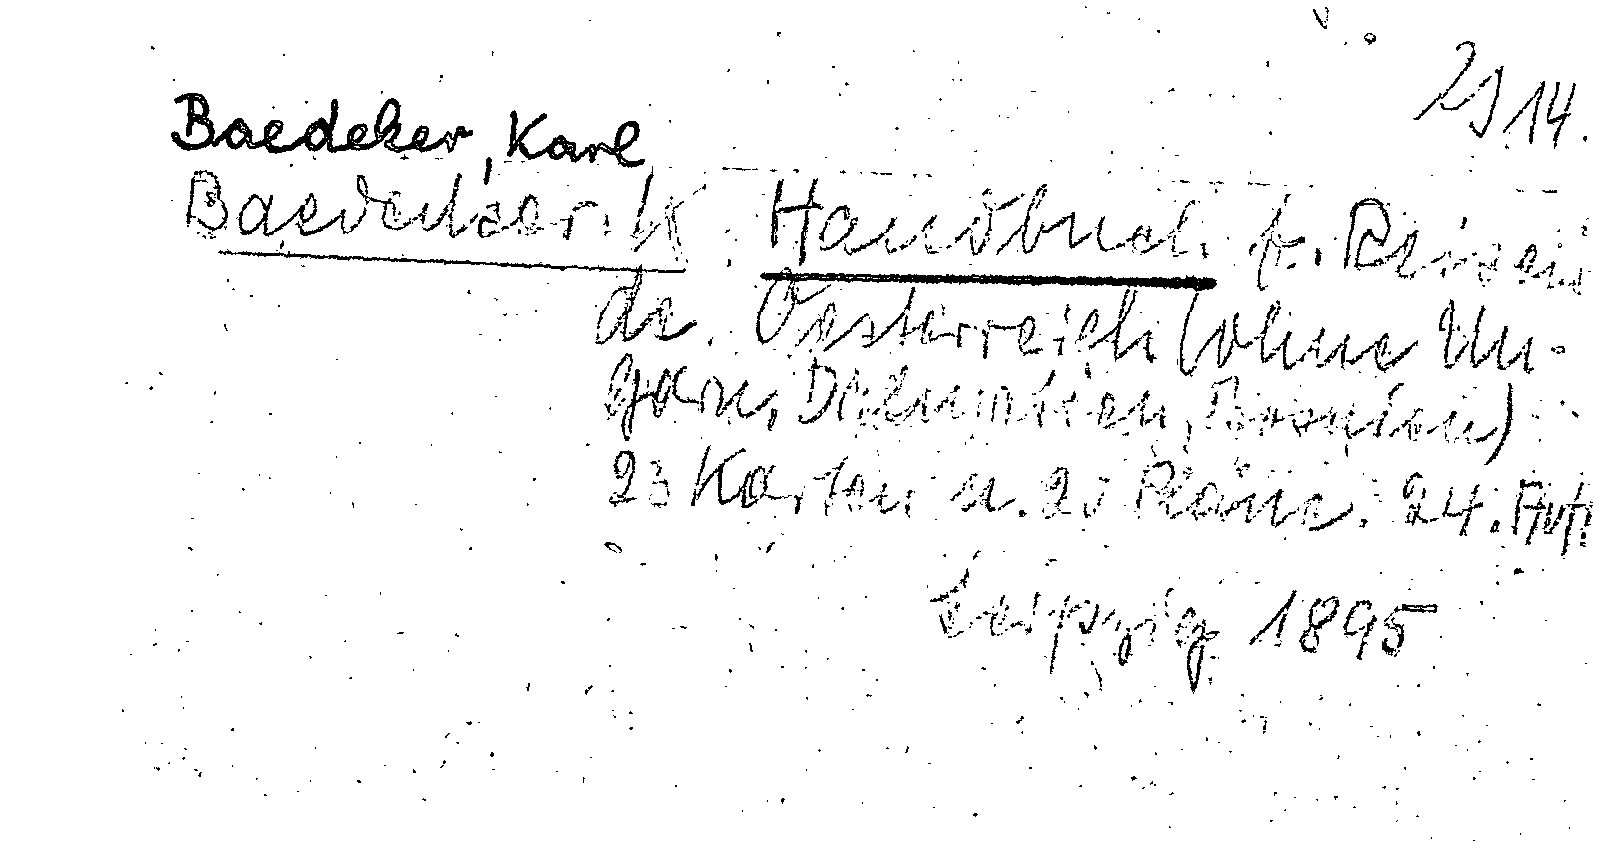 2914.
Baedeker, Karl
Baedecker. K. Handbuch f. Reisen
de. Oesterreich (ohne Un-
garn, Dalmatien, Bosnien)
23 Karten u. 20 Pläne. 24. Aufl
Leipzig 1895